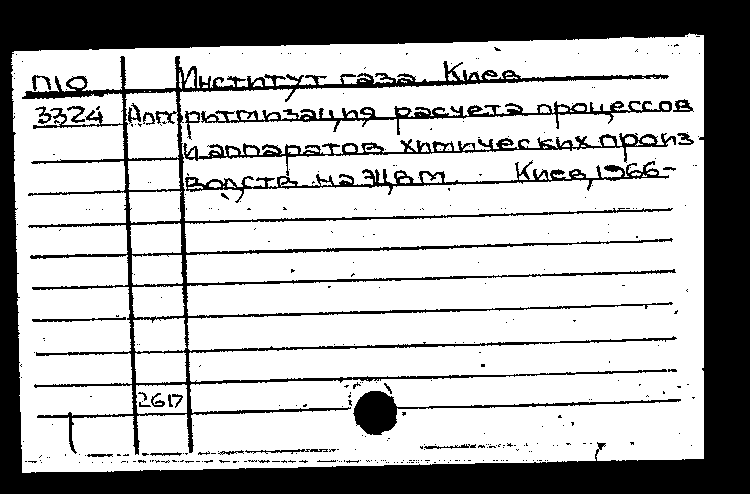 П10 Институт газа. Киев
3324 Алгоритмизация расчета процессов
и аппаратов химических произ-
водств на ЭЦВМ. Киев, 1966-
2617